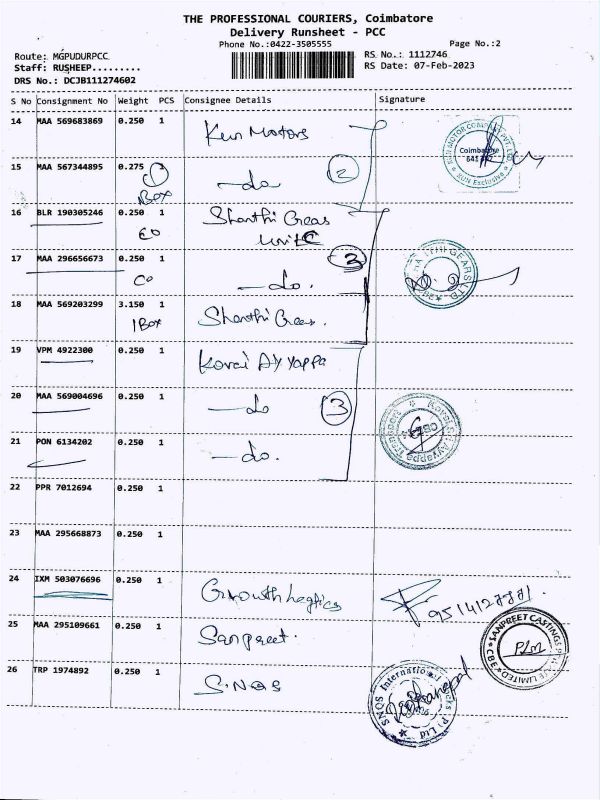 THE PROFESSIONAL COURIERS, Coimbatore
Delivery Runsheet - PCC
Phone No.:0422-3505555
Page No.:2
Route: MGPUDURPCC
Staff: RUSHEEP.........
DRS No.: DCJB111274602
RS No.: 1112746
RS Date: 07-Feb-2023
S No Consignment No Weight PCS Consignee Details Signature
14 MAA 569683869 0.250 1 Kun Motors
KUN MOTOR COMPANY PVT. LTD.
Coimbatore
641
KUN Exclusive
15 MAA 567344895 0.275 1 —do 2
1Box
16 BLR 190305246 0.250 1 Shanthi Gears
CO Unit C
17 MAA 296656673 0.250 1 —do. 3
CO
GEARS LTD
18 MAA 569203299 3.150 1 Shanthi Gears.
1Box
19 VPM 4922300 0.250 1 Kovai Ayyappa
20 MAA 569004696 0.250 1 —do 3
Ayyappa Transport
CBE
21 PON 6134202 0.250 1 —do.
22 PPR 7012694 0.250 1
23 MAA 295668873 0.250 1
24 IXM 503076696 0.250 1 Growth Logtics
25 MAA 295109661 0.250 1 Sanpreet.
SANPREET CASTINGS PRIVATE LIMITED
CBE
26 TRP 1974892 0.250 1 S.NQS
SNQS International
P) Ltd